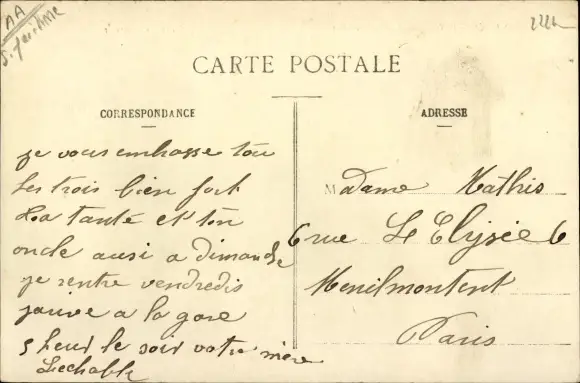 AA
CARTE POSTALE
CORRESPONDANCE
je vous embrasse tou
les trois bien fort
La tante et ton
oncle ausi a dimanche
je rentre vendredis
jarive a la gare
5 heur le soir votre mère
Lechable
ADRESSE
Madame Mathis
6 rue L'Elysée 6
Menilmontent
Paris